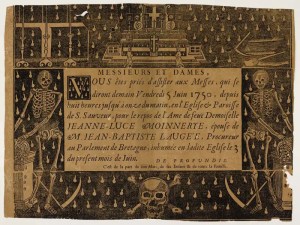 MESSIEURS ET DAMES,
VOUS êtes priés d'assister aux Messes, qui se
diront demain Vendredi 5 Juin 1750, depuis
huit heures jusqu'à onze du matin, en l'Eglise & Paroisse
de S. Sauveur, pour le repos de l'Ame de feuë Demoiselle
JEANNE-LUCE MOINNERIE, épouse de
M. JEAN-BAPTISTE AUGET, Procureur
au Parlement de Bretagne, inhumée en ladite Eglise le 3
du present mois de Juin. DE PROFUNDIS.
C'est de la part de